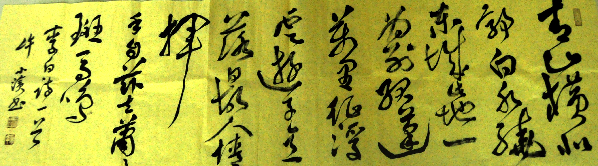 青山横北
郭白水绕
东城此地一
为别孤蓬
万里征浮
云游子意
落日故人情
挥
手自兹去萧々
班马鸣
李白诗一首